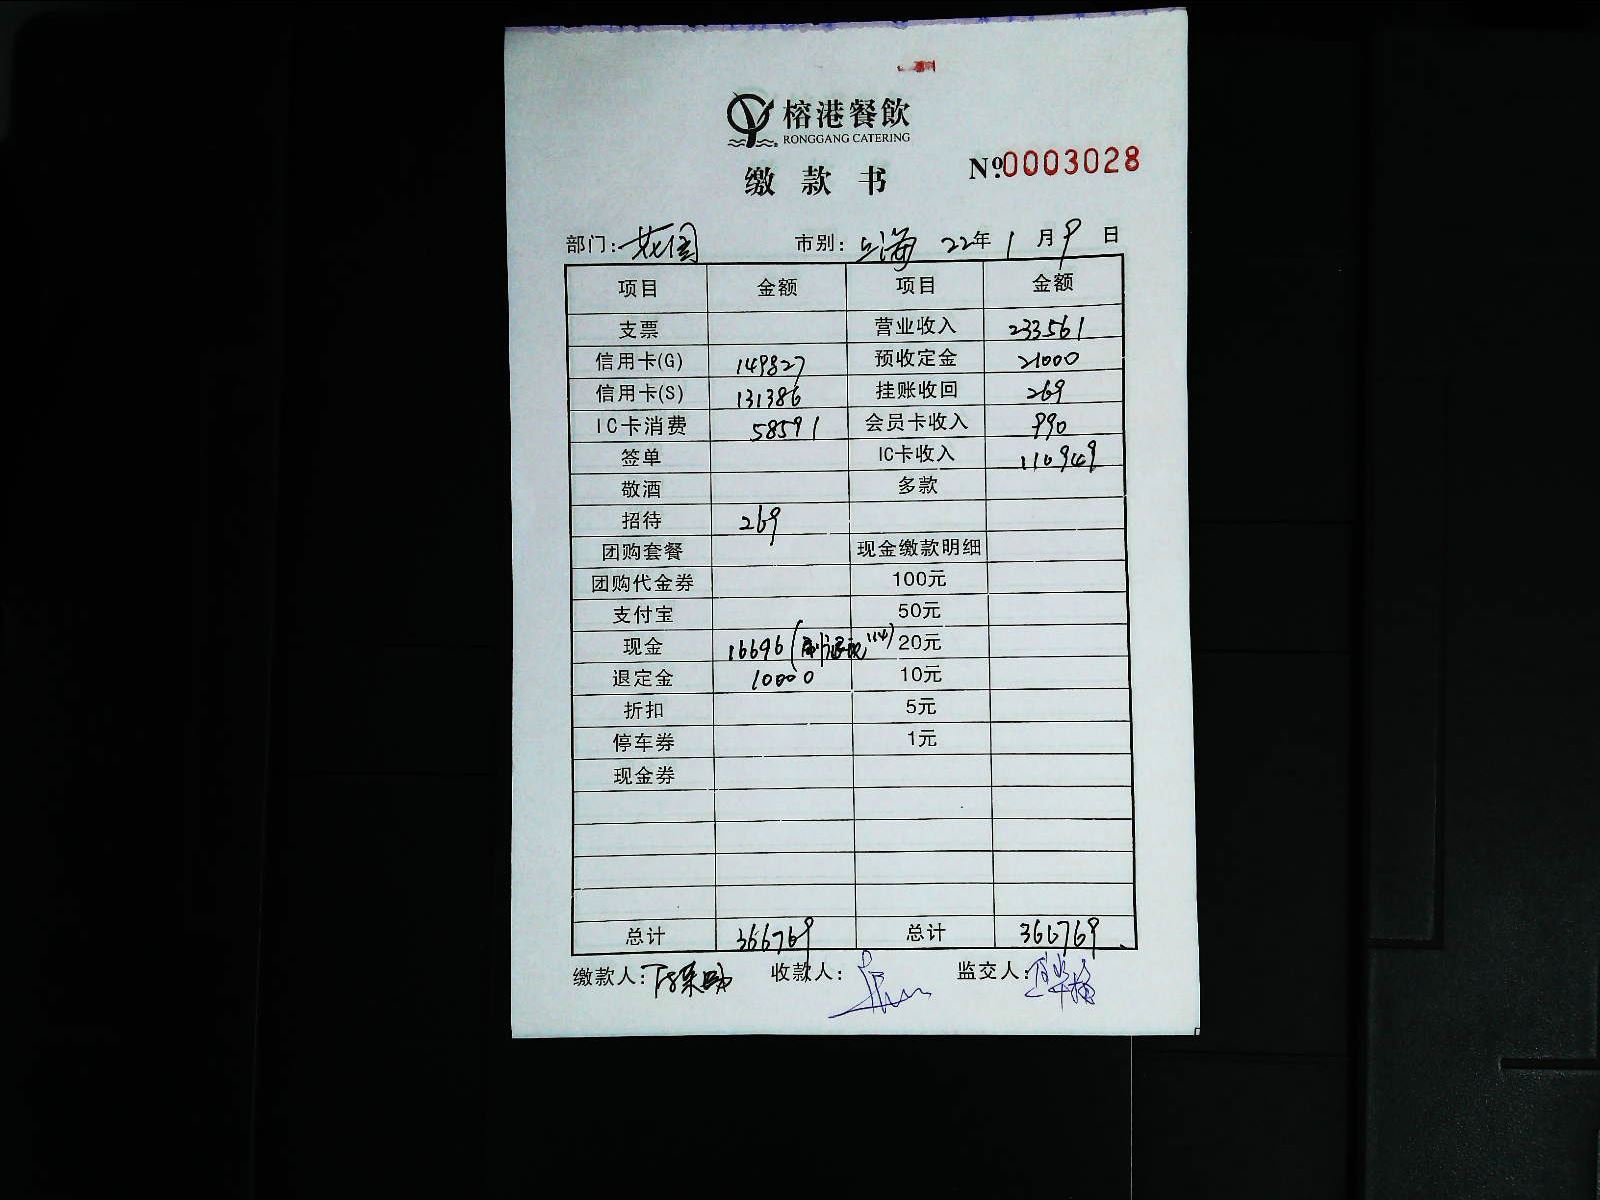 榕港餐飲
RONGGANG CATERING
缴款书
No.0003028
部门: 花园 市别: 上海 22年 1月 9日
项目 金额 项目 金额
支票 营业收入 233561
信用卡(G) 149827 预收定金 21000
信用卡(S) 131386 挂账收回 269
IC卡消费 58591 会员卡收入 990
签单 IC卡收入 110949
敬酒 多款
招待 269
团购套餐 现金缴款明细
团购代金券 100元
支付宝 50元
现金 16696 20元
退定金 10000 10元
折扣 5元
停车券 1元
现金券
总计 366769 总计 366769
缴款人: 收款人: 监交人: